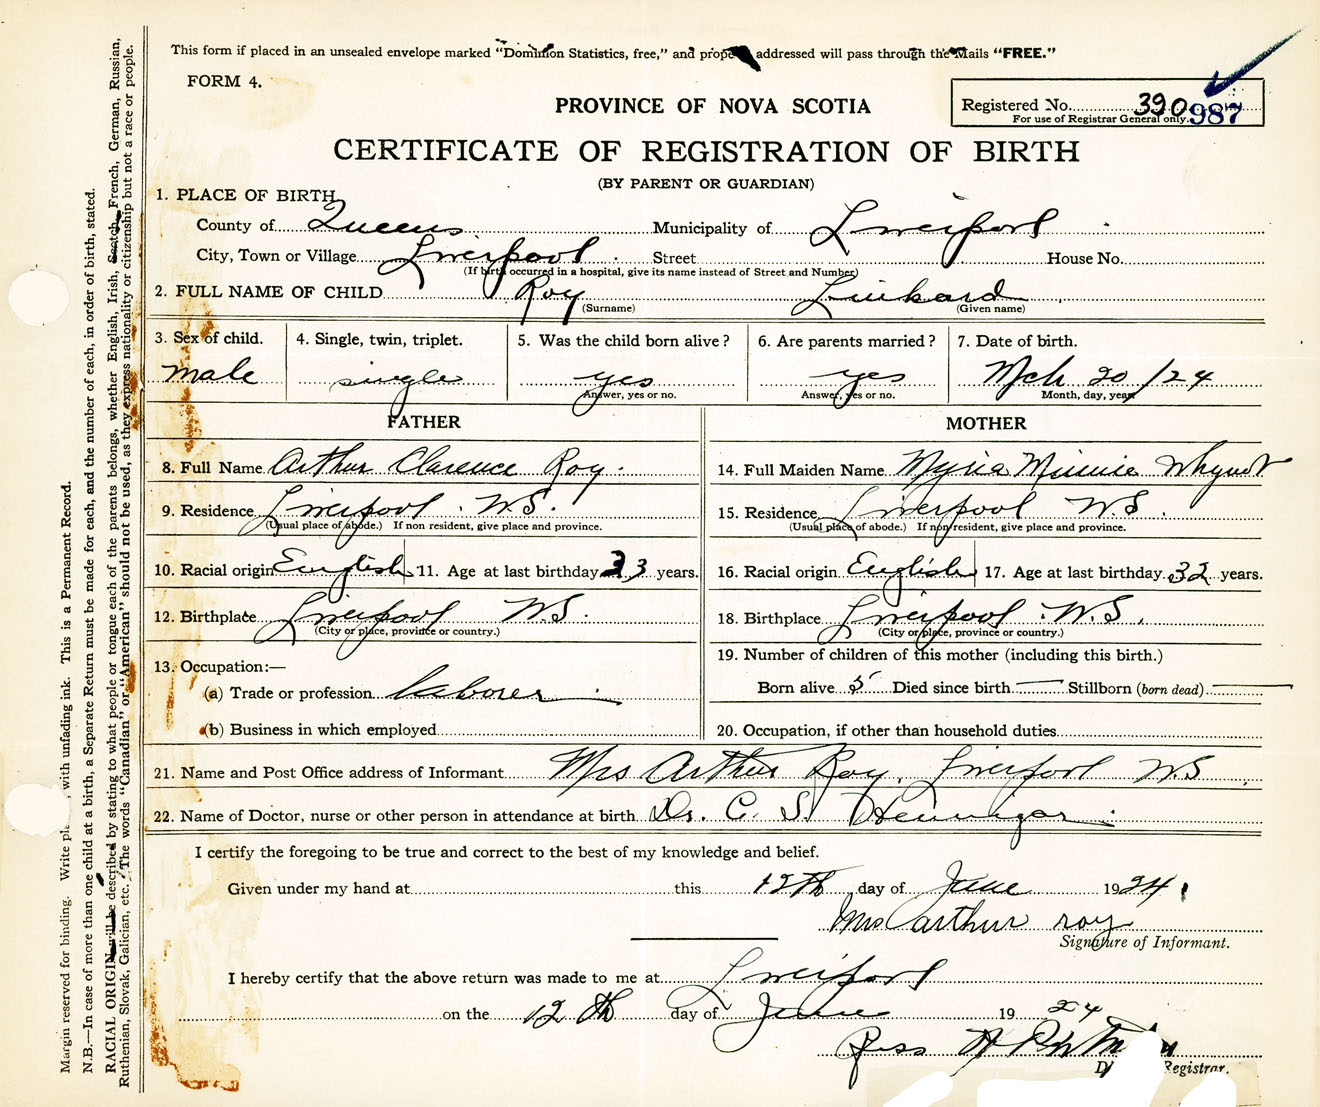 This form if placed in an unsealed envelope marked "Dominion Statistics, free," and addressed will pass through the Mails "FREE."
FORM 4.
PROVINCE OF NOVA SCOTIA
Registered No. 390 987
For use of Registrar General only.
CERTIFICATE OF REGISTRATION OF BIRTH
(BY PARENT OR GUARDIAN)
1. PLACE OF BIRTH
County of Queens Municipality of Liverpool
City, Town or Village Liverpool Street House No.
(If birth occurred in a hospital, give its name instead of Street and Number)
2. FULL NAME OF CHILD Roy Linkard
(Surname) (Given name)
3. Sex of child. 4. Single, twin, triplet. 5. Was the child born alive? 6. Are parents married? 7. Date of birth.
male single yes yes Mch 20/24
Answer, yes or no. Answer, yes or no. Month, day, year
FATHER MOTHER
8. Full Name Arthur Clarence Roy. 14. Full Maiden Name Minnie Whynot
9. Residence Liverpool N.S. 15. Residence Liverpool N.S.
(Usual place of abode.) If non resident, give place and province. (Usual place of abode.) If non resident, give place and province.
10. Racial origin English 11. Age at last birthday 33 years. 16. Racial origin English 17. Age at last birthday 32 years.
12. Birthplace Liverpool N.S. 18. Birthplace Liverpool N.S.
(City or place, province or country.) (City or place, province or country.)
13. Occupation:— 19. Number of children of this mother (including this birth.)
(a) Trade or profession laborer Born alive 5 Died since birth — Stillborn (born dead) —
(b) Business in which employed 20. Occupation, if other than household duties
21. Name and Post Office address of Informant Mrs Arthur Roy, Liverpool N.S.
22. Name of Doctor, nurse or other person in attendance at birth Dr. C. S. Hennigar
I certify the foregoing to be true and correct to the best of my knowledge and belief.
Given under my hand at this 12th day of June 1924
Mrs arthur roy
Signature of Informant.
I hereby certify that the above return was made to me at Liverpool
on the 12 th day of June 19 24
Registrar.
Margin reserved for binding. Write with unfading ink. This is a Permanent Record.
N.B.—In case of more than one child at a birth, a Separate Return must be made for each, and the number of each, in order of birth, stated.
RACIAL ORIGIN will be described by stating to what people or tongue each of the parents belongs, whether English, Irish, Scotch, French, German, Russian,
Ruthenian, Slovak, Galician, etc. The words "Canadian" or "American" should not be used, as they express nationality or citizenship but not a race or people.